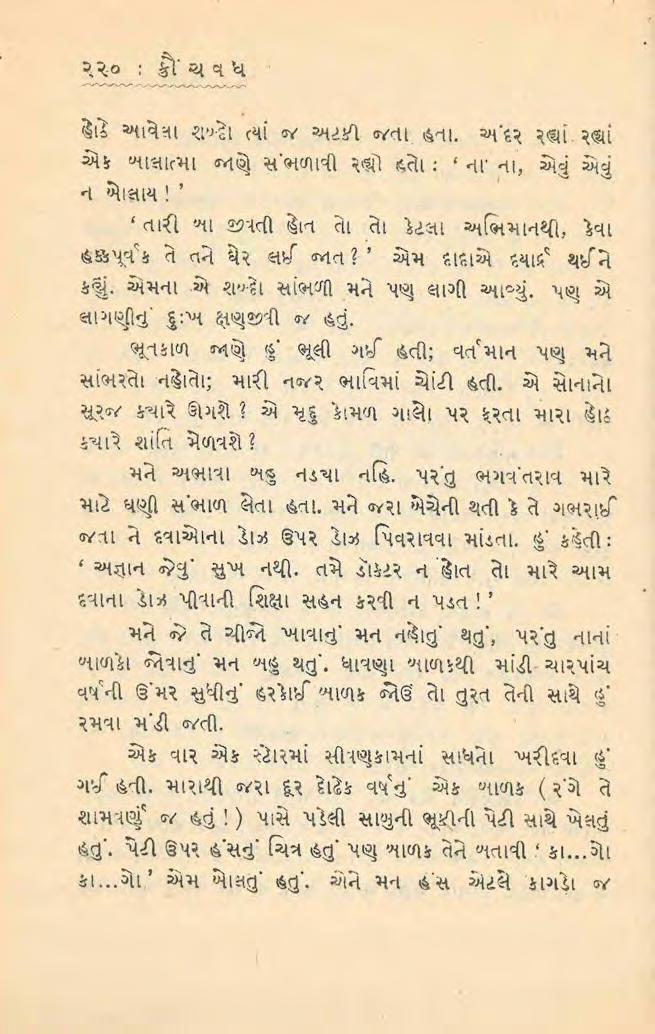 ૨૨૦ : ક્રૌંચવધ
હોઠે આવેલા શબ્દો ત્યાં જ અટકી જતા હતા. અંદર રહ્યાં રહ્યાં
એક બાલાત્મા જાણે સંભળાવી રહ્યો હતો : ‘ ના ના, એવું એવું
ન બોલાય ! ’
‘ તારી બા જીવતી હોત તો તો કેટલા અભિમાનથી, કેવા
હક્કપૂર્વક તે તને ઘેર લઈ જાત ? ’ એમ દાદાએ દયાર્દ્ર થઈને
કહ્યું. એમના એ શબ્દો સાંભળી મને પણ લાગી આવ્યું. પણ એ
લાગણીનું દુઃખ ક્ષણજીવી જ હતું.
ભૂતકાળ જાણે હું ભૂલી ગઈ હતી; વર્તમાન પણ મને
સાંભરતો નહોતો; મારી નજર ભાવિમાં ચોંટી હતી. એ સોનાનો
સૂરજ ક્યારે ઊગશે ? એ મૃદુ કોમળ ગાલો પર ફરતા મારા હોઠ
ક્યારે શાંતિ મેળવશે ?
મને અભાવા બહુ નડ્યા નહિ. પરંતુ ભગવંતરાવ મારે
માટે ઘણી સંભાળ લેતા હતા. મને જરા બેચેની થતી કે તે ગભરાઈ
જતા ને દવાઓના ડોઝ ઉપર ડોઝ પિવરાવવા માંડતા. હું કહેતી :
‘ અજ્ઞાન જેવું સુખ નથી. તમે ડૉક્ટર ન હોત તો મારે આમ
દવાના ડોઝ પીવાની શિક્ષા સહન કરવી ન પડત ! ’
મને જે તે ચીજો ખાવાનું મન નહોતું થતું, પરંતુ નાનાં
બાળકો જોવાનું મન બહુ થતું. ધાવણા બાળકથી માંડી ચારપાંચ
વર્ષની ઉંમર સુધીનું હરકોઈ બાળક જોઉં તો તુરત તેની સાથે હું
રમવા મંડી જતી.
એક વાર એક સ્ટોરમાં સીવણકામનાં સાધનો ખરીદવા હું
ગઈ હતી. મારાથી જરા દૂર દોઢેક વર્ષનું એક બાળક ( રંગે તે
શામવર્ણું જ હતું ! ) પાસે પડેલી સાબુની ભૂકીની પેટી સાથે ખેલતું
હતું. પેટી ઉપર હંસનું ચિત્ર હતું પણ બાળક તેને બતાવી ‘ કા...ગો
કા...ગો ’ એમ બોલતું હતું. એને મન હંસ એટલે કાગડો જ